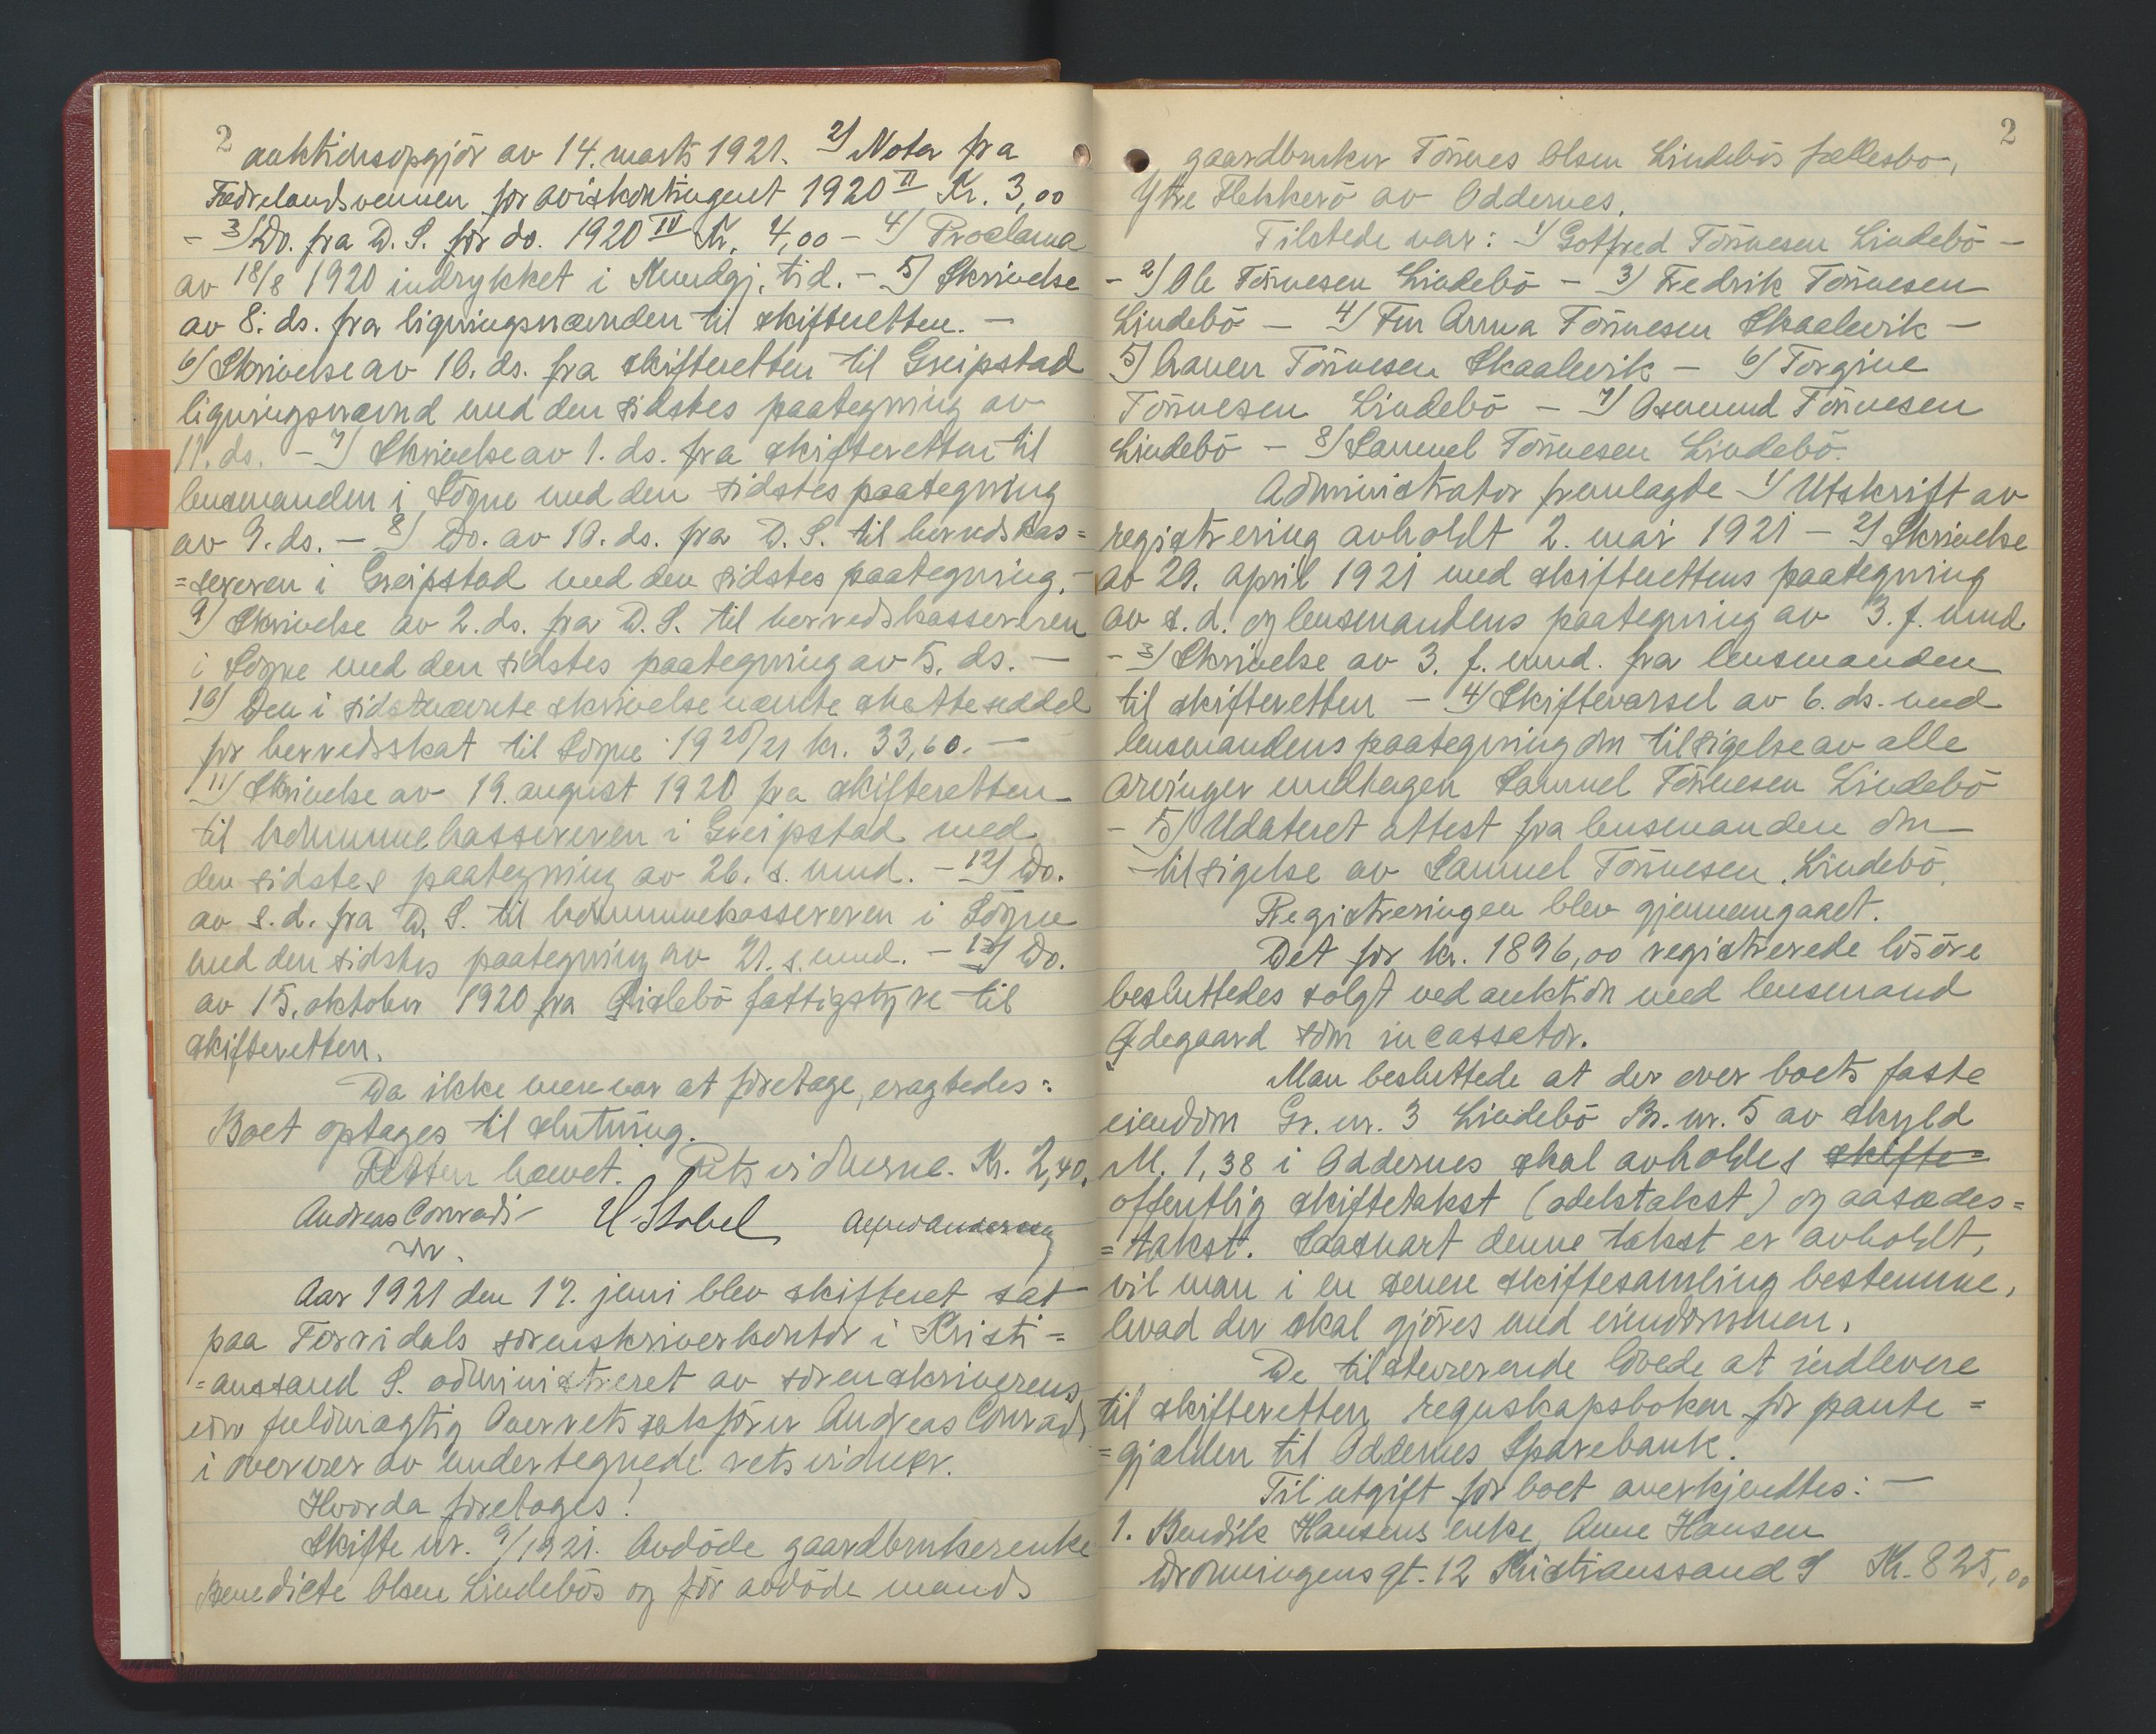 2
auktionsopgjör av 14. marts 1921. 2) Nota fra
Fædrelandsvennen for aviskontingent 1920 II Kr. 3,00
- 3) Do. fra D. S. for do. 1920 IV Kr. 4,00 - 4) Proclama
av 18/8 1920 indrykket i Kundgj. tid. - 5) Skrivelse
av 8. ds. fra ligningsnævnden til skifteretten. -
6) Skrivelse av 10. ds. fra skifteretten til Greipstad
ligningsnævnd med den sidstes paategning av
11. ds. - 7) Skrivelse av 1. ds. fra skifteretten til
lensmanden i Sögne med den sidstes paategning
av 9. ds. - 8) Do. av 10. ds. fra D. S. til herredskas=
=sereren i Greipstad med den sidstes paategning. -
9) Skrivelse av 2. ds. fra D. S. til herredskassereren
i Sögne med den sidstes paategning av 5. ds. -
10) Den i sidstnævnte skrivelse nævnte skatteseddel
for herredsskat til Sögne 1920/21 kr. 33,60. -
11) Skrivelse av 19. august 1920 fra skifteretten
til kommunekassereren i Greipstad med
den sidstes paategning av 26. s. mnd. - 12) Do.
av s. d. fra D. S. til kommunekassereren i Sögne
med den sidstes paategning av 21. s. mnd. - 13) Do.
av 15. oktober 1920 fra Gislebö fattigstyre til
skifteretten.
Da ikke mere var at foretage, eragtedes:
Boet optages til slutning.
Retten hævet. Retsvidnerne. Kr. 2,40.
Andreas Conradi H. Stabel
Aar 1921 den 17. juni blev skifteret sat
paa Torridals sorenskriverkontor i Kristi=
=anssand S. administreret av sorenskriverens
edsv fuldmægtig Overretssakförer Andreas Conradi
i overvær av undertegnede retsvidner.
Hvorda foretoges!
Skifte nr. 9/1921. Avdöde gaardbrukerenke
Benedicte Olsen Lindebös og för avdöde mands
2
gaardbruker Tönnes Olsen Lindebös fællesbo,
Ytre Flekkerö av Oddernes.
Tilstede var: 1) Gotfred Tönnesen Lindebö -
- 2) Ole Tönnesen Lindebö - 3) Fredrik Tönnesen
Lindebö - 4) Fru Anna Tönnesen Skaalevik -
5) Tönnesen Skaalevik - 6) Torgine
Tönnesen Lindebö - 7) Osmund Tönnesen
Lindebö - 8) Samuel Tönnesen Lindebö.
Administrator fremlagte 1) Utskrift av
registrering avholdt 2. mai 1921 - 2) Skrivelse
av 29. april 1921 med skifterettens paategning
av s. d. og lensmandens paategning av 3. f. mnd.
- 3) Skrivelse av 3. f. mnd. fra lensmanden
til skifteretten - 4) Skiftevarsel av 6. ds. med
lensmandens paategning om tilsigelse av alle
arvinger undtagen Samuel Tönnesen Lindebö
- 5) Udateret attest fra lensmanden om
tilsigelse av Samuel Tönnesen Lindebö.
Registreringen blev gjennemgaaet.
Det for kr. 1896,00 registrerede lösöre
besluttedes solgt ved auktion med lensmand
Ødegaard som incassator.
Man besluttede at der over boets faste
eiendom Gr. nr. 3 Lindebö Br. nr. 5 av skyld
M. 1,38 i Oddernes skal avholdes skifte=
offentlig skiftetakst (odelstakst) og aasædes=
=takst. Saasnart denne takst er avholdt,
vil man i en senere skiftesamling bestemme,
hvad der skal gjöres med eiendommen.
De tilstedeværende lovede at indlevere
til skifteretten regnskapsboken for pante=
=gjælden til Oddernes Sparebank.
Til utgift for boet anerkjendtes: -
1. Bendik Hansens enke, Anne Hansen
Dronningens gt. 12 Kristianssand S Kr. 825,00